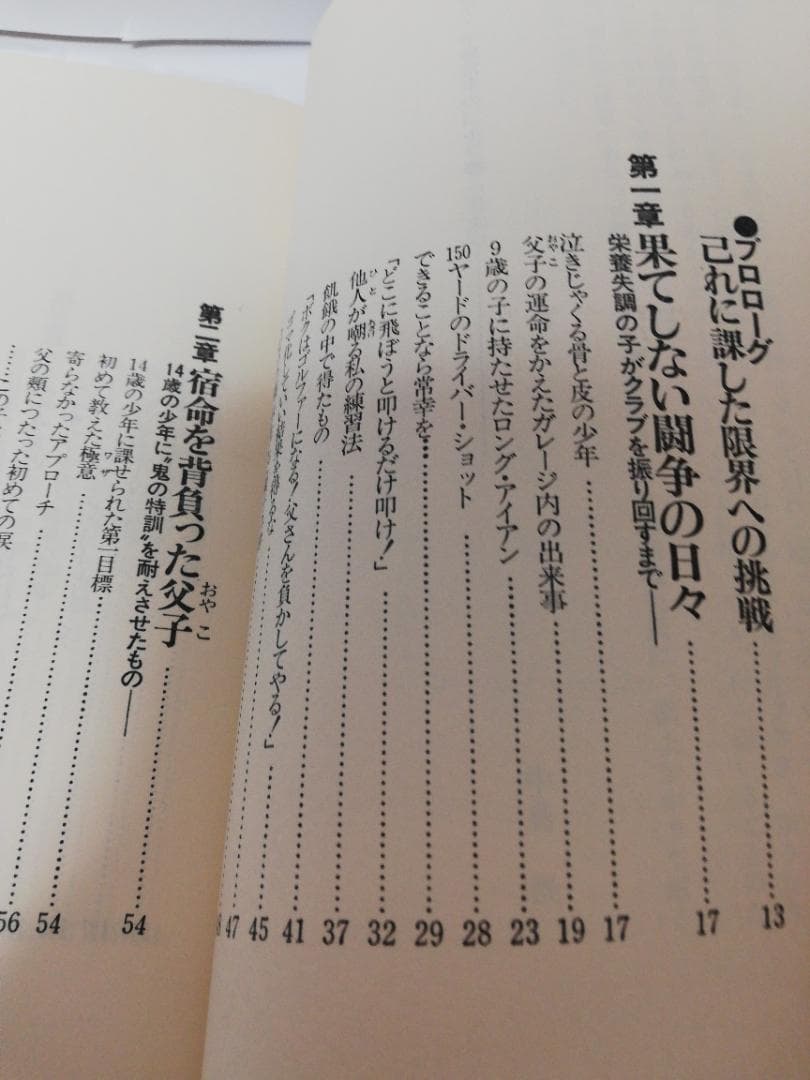 ●プロローグ
己れに課した限界への挑戦……13
第一章 果てしない闘争の日々……17
栄養失調の子がクラブを振り回すまで——
泣きじゃくる骨と皮の少年……17
父子の運命をかえたガレージ内の出来事……19
おやこ
9歳の子に持たせたロング・アイアン……23
150ヤードのドライバー・ショット……28
できることなら常幸を……29
「どこに飛ぼうと叩けるだけ叩け！」……32
他人が嘲る私の練習法……37
ひと
飢餓の中で得たもの……41
「ボクはゴルファーになる！父さんを負かしてやる！」……45
47
第二章 宿命を背負った父子
おやこ
14歳の少年に〝鬼の特訓〟を耐えさせたもの——
14歳の少年に課せられた第一目標……54
初めて教えた極意
ワザ
寄らなかったアプローチ……54
父の頬につたった初めての涙……56